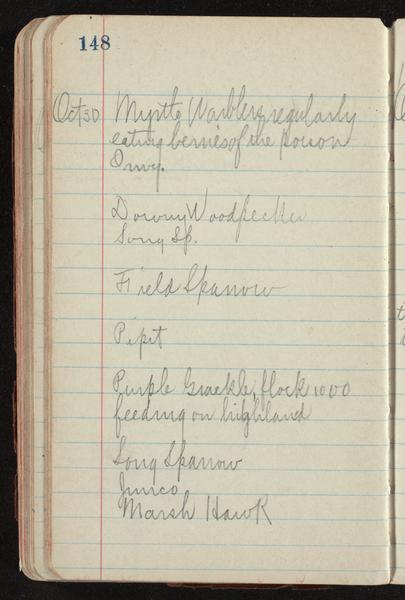 148
Oct 30 Myrtle Warblers regularly
eating berries of the poison
Ivy.
Downy Woodpecker
Song Sp.
Field Sparrow
Pipit
Purple Grackle, flock 1000
feeding on highland
Song Sparrow
Junco
Marsh Hawk